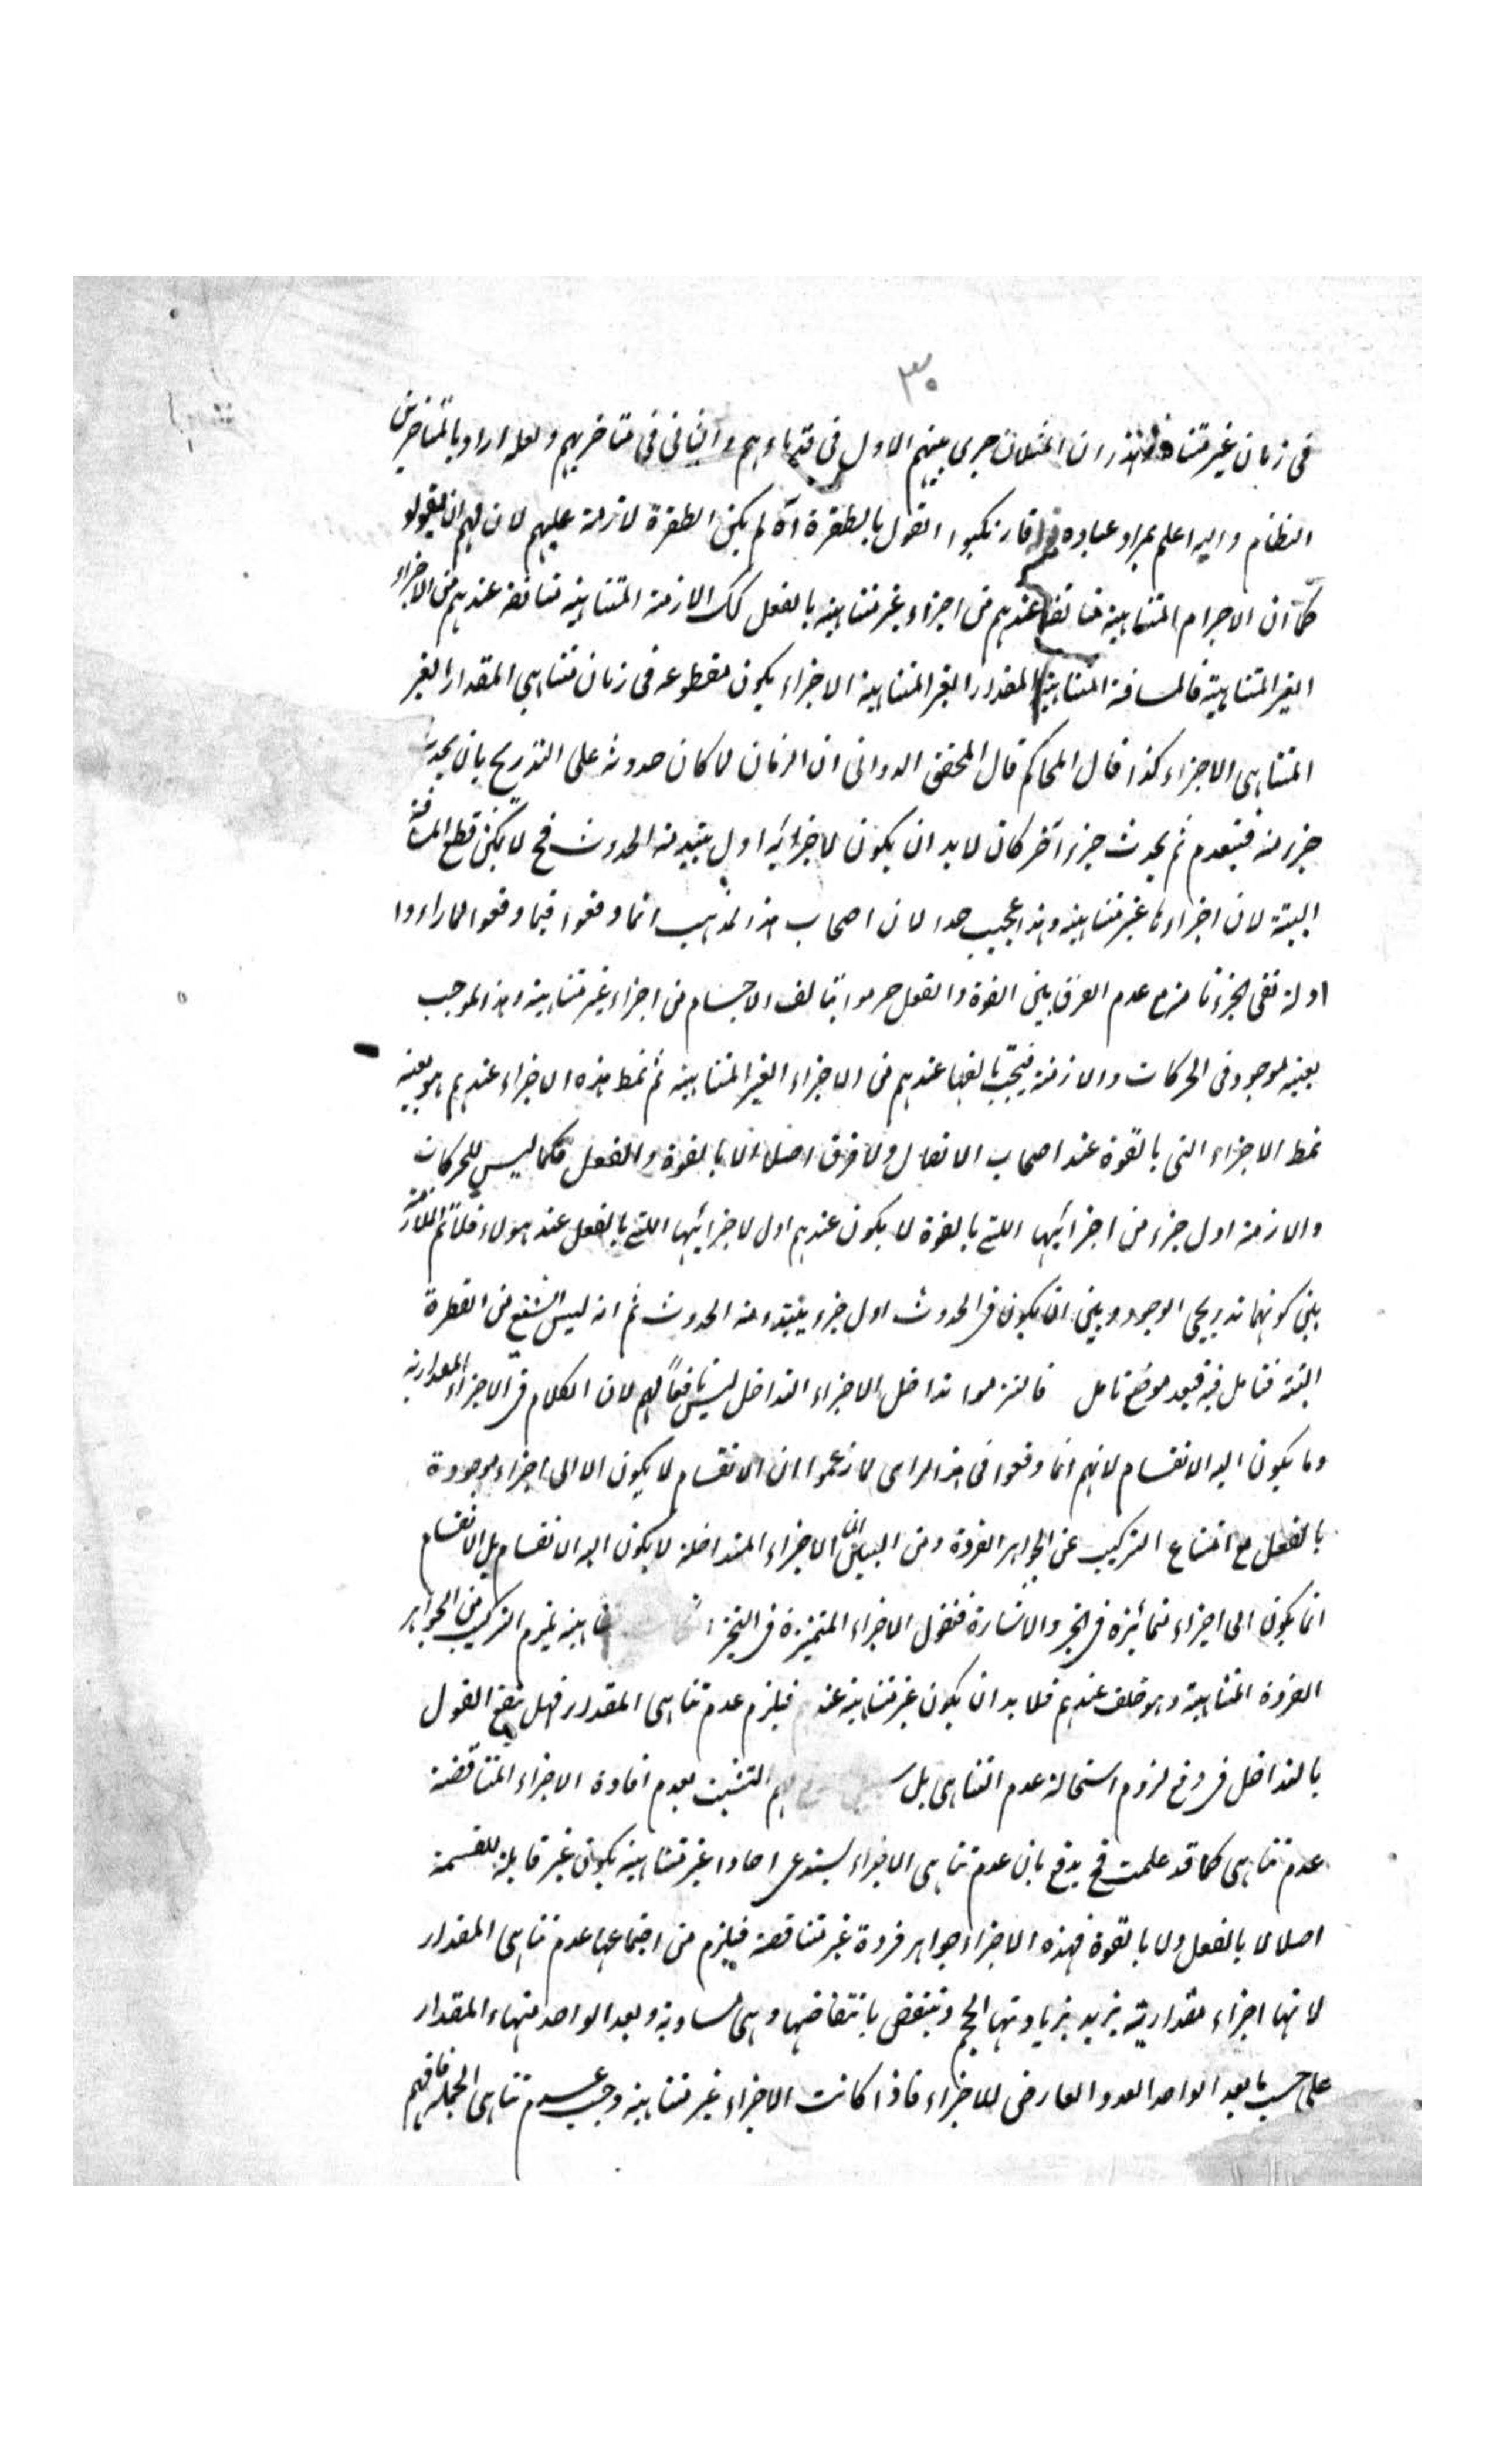 ٣٠
فى زمان غير متناه فهذان المثلان جرى بينهم الاول فى قدماءهم والثانى فى متاخريهم ولعله اراد بالمتاخرين
النظام والله اعلم بمراد عباده فارتكبوا القول بالطفرة اه لم يكن الطفرة لازمة عليهم لان لهم ان يقولو
كما ان الاجرام المتناهية متالفة عندهم من اجزاء غير متناهية بالفعل كك الازمنة المتناهية متالفة عندهم من الاجزاء
الغير المتناهية فالمسافة المتناهية المقدار الغير المتناهية الاجزاء يكون مقطوعه فى زمان متناهى المقدار الغير
المتناهى الاجزاء كذا قال المحاكم قال المحقق الدوانى ان الزمان لما كان حدوثه على التدريج بان يحدث
جزء منه فينعدم ثم يحدث جزء آخر كان لا بد ان يكون لاجزائه اول يبتدء منه الحدوث فح لا يمكن قطع المسافة
البتة لان اجزاءها غير متناهية وهذا عجيب جدا لان اصحاب هذا المذهب انما وقعوا فيما وقعوا لما راءوا
ادلة نفى الجزء تامة مع عدم الفرق بين القوة والفعل جزموا بتالف الاجسام من اجزاء غير متناهية وهذا الموجب
بعينه موجود فى الحركات والازمنة فيجب تالفها عندهم من الاجزاء الغير المتناهية ثم نمط هذه الاجزاء عندهم هو بعينه
نمط الاجزاء التى بالقوة عند اصحاب الاتصال ولا فرق اصلا الا بالقوة والفعل فكما ليس للحركات
والازمنة اول جزء من اجزائها اللتى بالقوة لا يكون عندهم اول لاجزائها اللتى بالفعل عند هولاء فلا تم الملازمة
بين كونهما تدريجى الوجود وبين ان يكون فى الحدوث اول جزء يبتدء منه الحدوث ثم انه ليس اشنع من الطفرة
البتة فتامل فيه فبعد موضع تامل فالتزموا تداخل الاجزاء التداخل ليس نافعا لهم لان الكلام فى الاجزاء المقدارية
وما يكون اليه الانقسام لانهم انما وقعوا فى هذا الراى لما زعموا ان الانقسام لا يكون الا الى اجزاء موجودة
بالفعل مع امتناع التركيب عن الجواهر الفردة ومن البين ان الاجزاء المتداخلة لا يكون اليه الانقسام بل الانقسام
انما يكون الى اجزاء متمائزة فى الحيز والاشارة فنقول الاجزاء المتميزة فى التحيز ان كانت متناهية يلزم التركيب من الجواهر
الفردة المتناهية وهو خلف عندهم فلا بد ان يكون غير متناهية عندهم فيلزم عدم تناهى المقدار فهل ينفع القول
بالتداخل فى دفع لزوم استحالة عدم التناهى بل لهم التشبث بعدم افادة الاجزاء المتناقصة
عدم تناهى كما قد علمت فح يدفع بان عدم تناهى الاجزاء يستدعى احادا غير متناهية يكون غير قابلة للقسمة
اصلا لا بالفعل ولا بالقوة فهذه الاجزاء جواهر فردة غير متناقصة فيلزم من اجتماعها عدم تناهى المقدار
لانها اجزاء مقدارية يزيد بزيادتها الحجم وينقص بانتقاصها وهى مساوية ويعد الواحد منها المقدار
على حسب ما يعد الواحد العدد العارض للاجزاء فاذا كانت الاجزاء غير متناهية وجب عدم تناهى الجملة فافهم